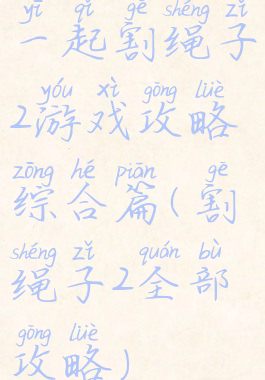 yī qǐ gē shéng zǐ
一起割绳子
yóu xì gōng lüè
2游戏攻略
zōng hé piān gē
综合篇(割
shéng zǐ quán bù
绳子2全部
gōng lüè
攻略)